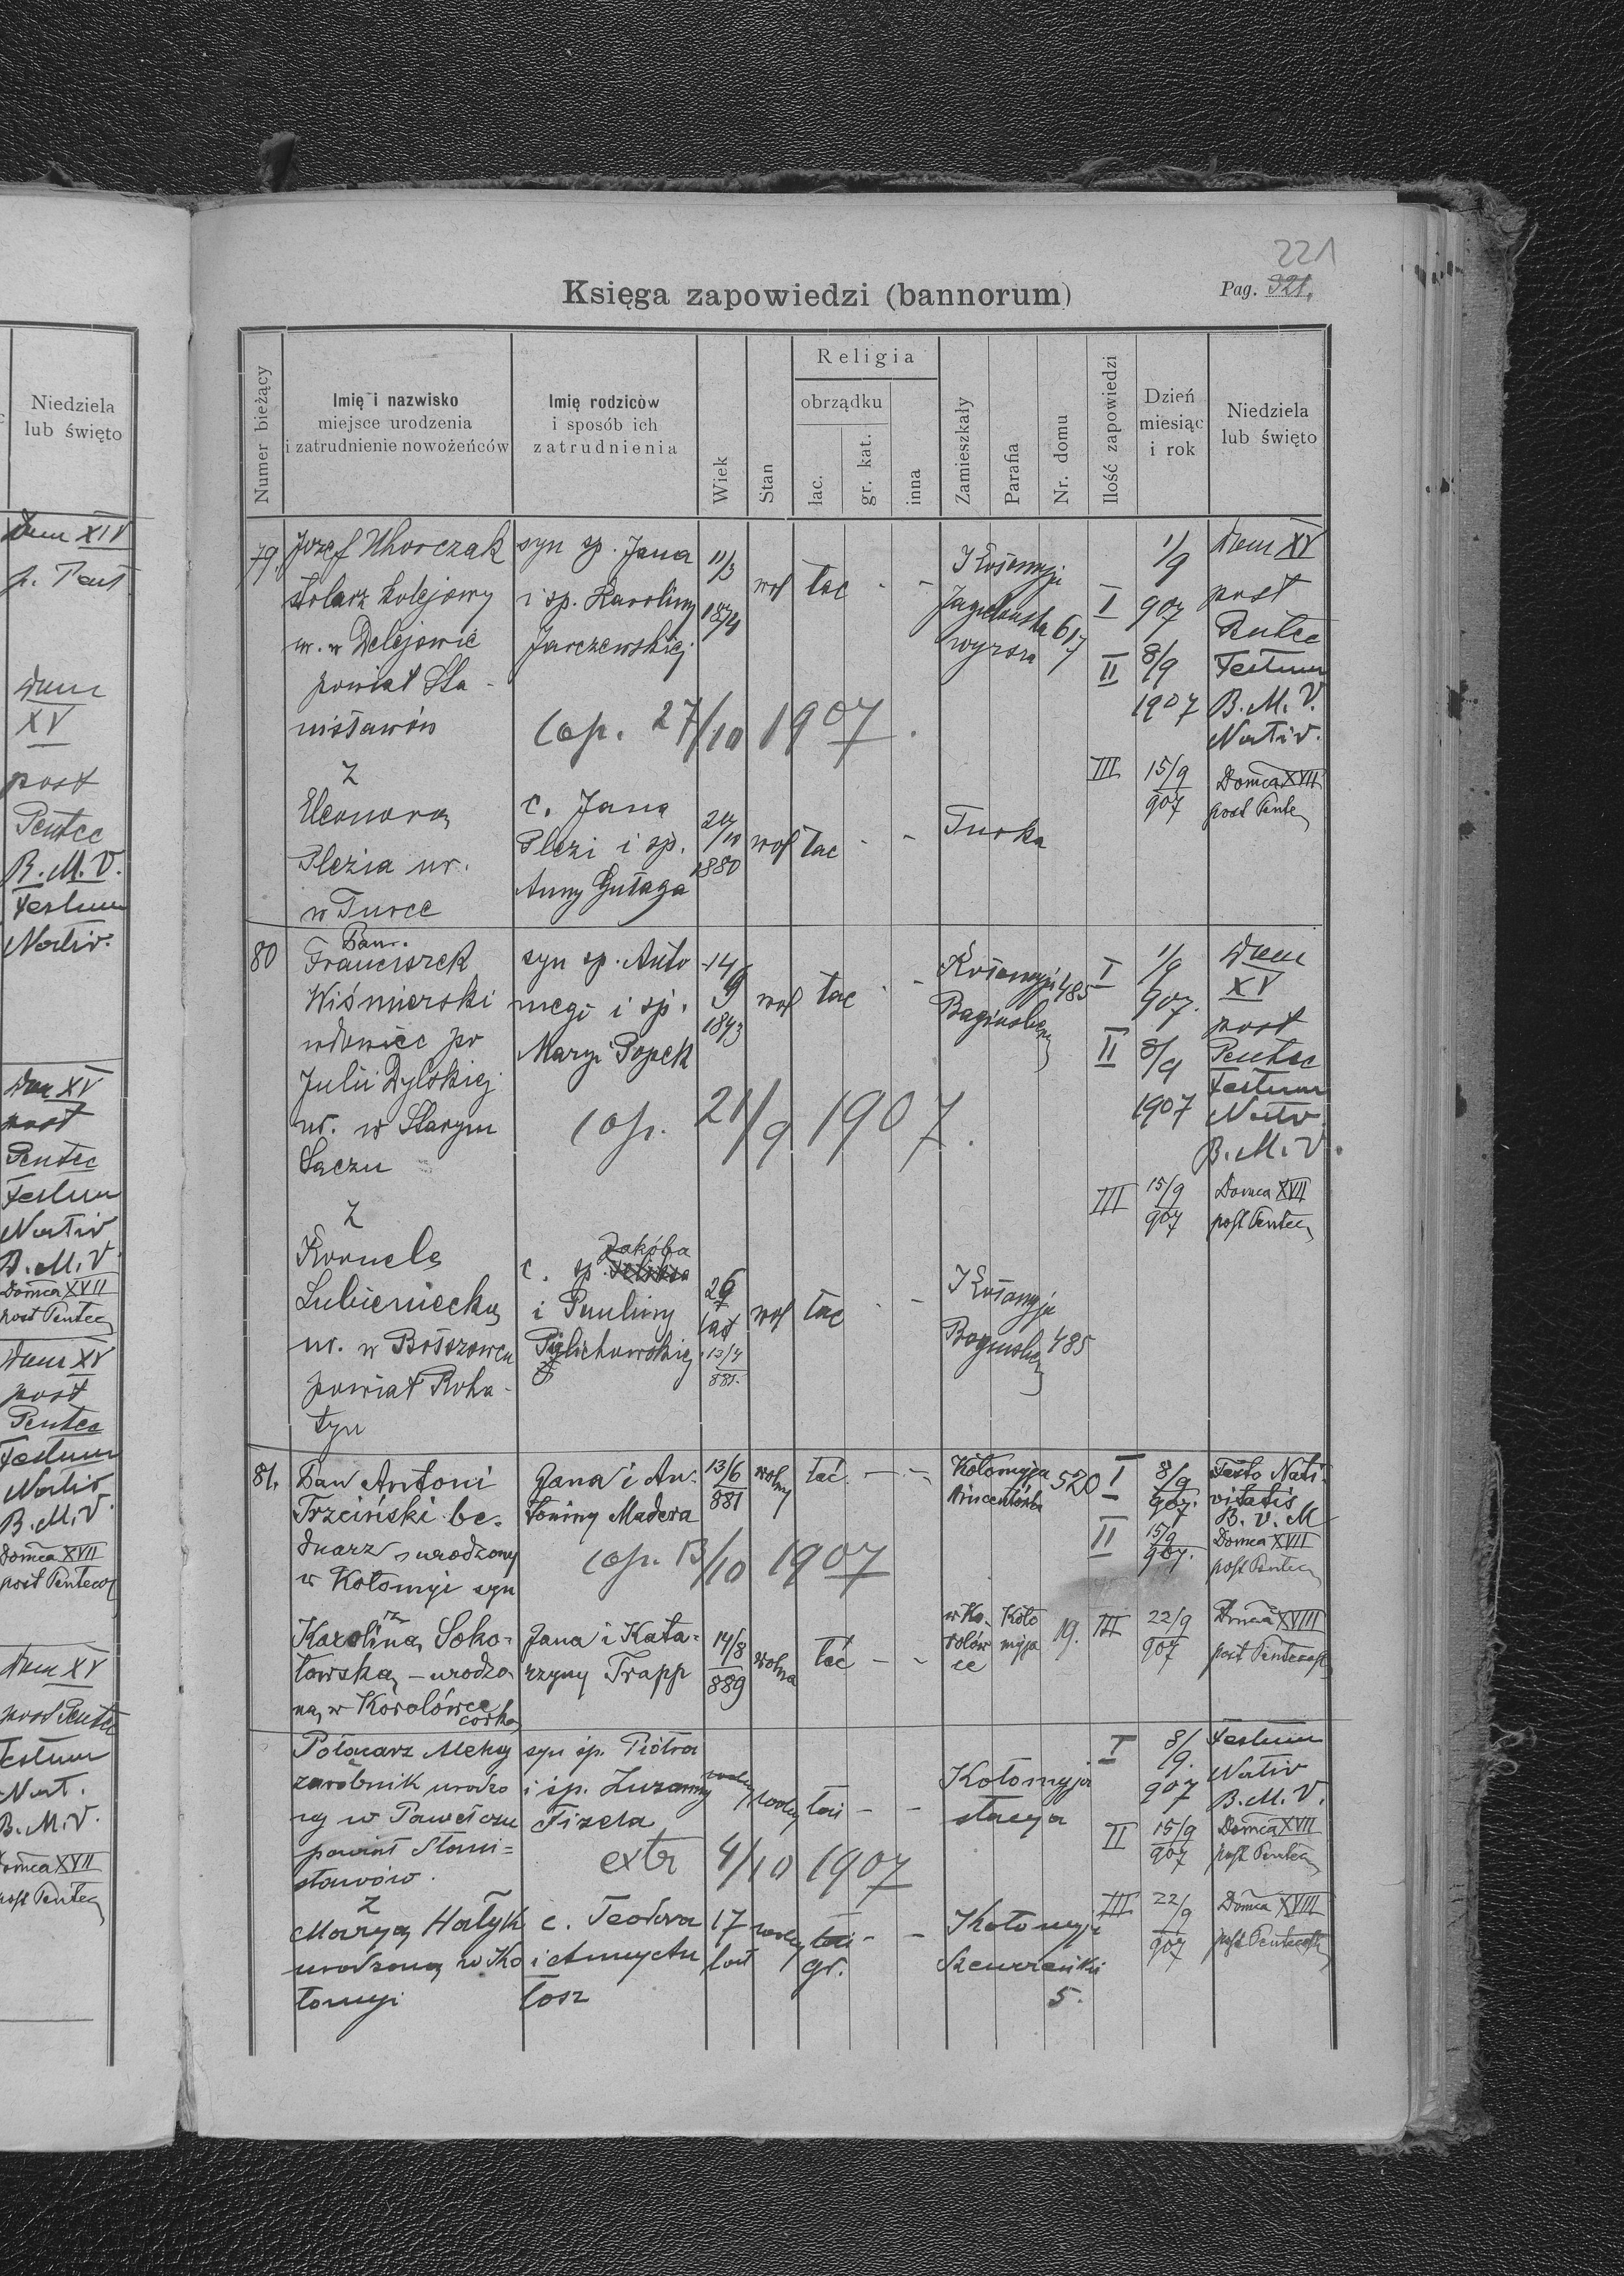 221
Księga zapowiedzi (bannorum)
Pag. 321.
Numer bieżący
Imię i nazwisko
miejsce urodzenia
i zatrudnienie nowożeńców
Imię rodziców
i sposób ich
zatrudnienia
Wiek
Stan
Religia
obrządku
łac.
gr. kat.
inna
Zamieszkały
Parafia
Nr. domu
Ilość zapowiedzi
Dzień
miesiąc
i rok
Niedziela
lub święto
79. Józef Uhorczak syn sp. Jana 11/3 wol łac - - Kołomyja I 1/9 Dom XV
stolarz kolejowy i sp. Karoliny 1874 617 907 post
ur. w Delejowie Jarczewskiej II 8/9 Pentec
powiat Sta- 1907 Festum
nisławów B. M. V.
Cop. 27/10 1907. Nativ.
z III 15/9 Domca XVII
Eleonora c. Jana 907 post Pente
Plezia ur. Plezi i sp. 1880 wol łac - - Turka
w Turce Anny Gułaga
80 Pan.
Franciszek syn sp. Anto 14/9 wol łac - - Kołomyja 485 I 1/9 Dom
Wiśnierski niego i sp. 1843 Baginsberg 907. XV
wdowiec po Maryi Popek II 8/9 post
Julii Dylskiej 1907 Pentec
ur. w Starym Festum
Sączu Nativ
Cop. 21/9 1907. B. M. V.
z III 15/9 Domca XVII
907 post Pentec
Kornela c. sp. Jakóba
Lubieniecka i Pauliny 26 lat wol łac - - Kołomyja
ur. w Bołszowcu Piglichowskiej 13/4 881. Baginsberg 485
powiat Roha-
tyn
81. Pan Antoni Jana i An- 13/6 wolny łać. - - Kołomyja 520 I 8/9 Festo Nati-
Trzciński be- toniny Madera 881 Wincentówka 907. vitatis
B. V. M
dnarz urodzony II 15/9 Domca XVII
w Kołomyi syn Cop. 13/10 1907 907. post Pentec
z
Karolina Soko- Jana i Kata- 14/8 wolna łać - - w Ko- Koło 19. III 22/9 Domca XVIII
łowska - urodzo- rzyny Trapp 889 rolów myja 907 post Pentecost
na w Korolówce ce
córka
Połacarz Aleksy syn śp. Piotra I 8/9. Festum
zarobnik urodzo i śp. Zuzanny Kołomyja 907 Nativ
ny w Pawełczu Fizela - - stacya B. M. V.
powiat Stani- II 15/9 Domca XVII
sławów. extr 4/10 1907 907 post Pentec
z
Marya Hałyk c. Teodora 17 - - Kołomyja III 22/9 Domca XVIII
urodzona w Ko i Anny An lat gr. 907 post Pentecost
łomyi tosz 5.
Niedziela
lub święto
Dom XIV
p. Pent
Dom
XV
post
Pentec
B. M. V.
Festum
Nativ.
Dom XV
post
Pentec
Festum
Nativ
B. M. V.
Domca XVII
post Pentec
Dom XV
post
Pentec
Festum
Nativ
B. M. V.
Domca XVII
post Pentecos
Dom XV
post Pentec
Festum
Nat.
B. M. V.
Domca XVII
post Pentec